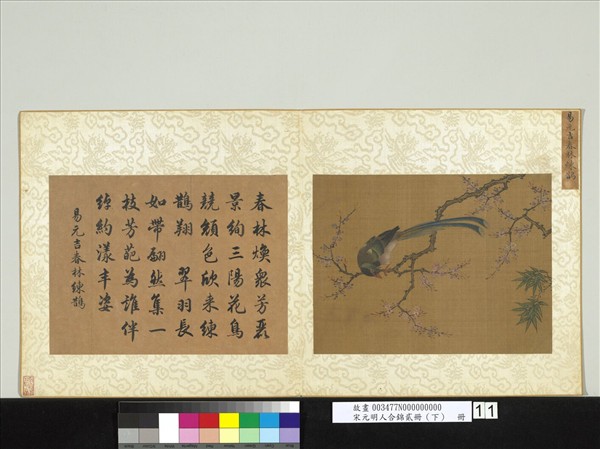 易元吉春林練鵲
春林煥衆芳麗
景絢三陽花鳥
競顏色欣来練
鵲翔 翠羽長
如帶翩然集一
枝芳葩為誰伴
綽約漾丰姿
易元吉春林練鵲
故畫 003477N000000000
宋元明人合錦貳冊（下） 冊
11